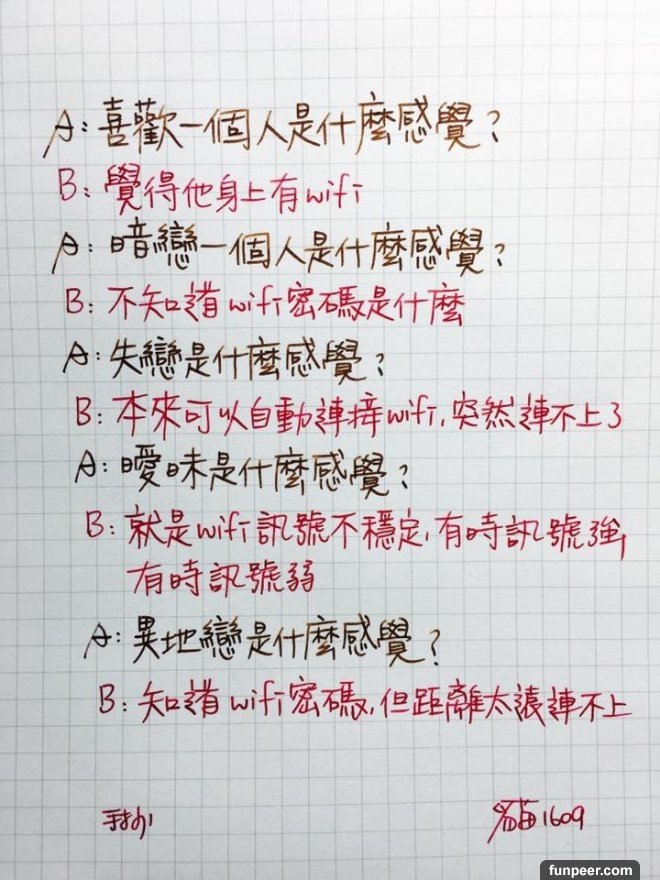 A: 喜歡一個人是什麼感覺?
B: 覺得他身上有wifi
A: 暗戀一個人是什麼感覺?
B: 不知道wifi密碼是什麼
A: 失戀是什麼感覺?
B: 本來可以自動連接wifi,突然連不上了
A: 曖昧是什麼感覺?
B: 就是wifi訊號不穩定,有時訊號強,
有時訊號弱
A: 異地戀是什麼感覺?
B: 知道wifi密碼,但距離太遠連不上
貓1609
funpeer.com